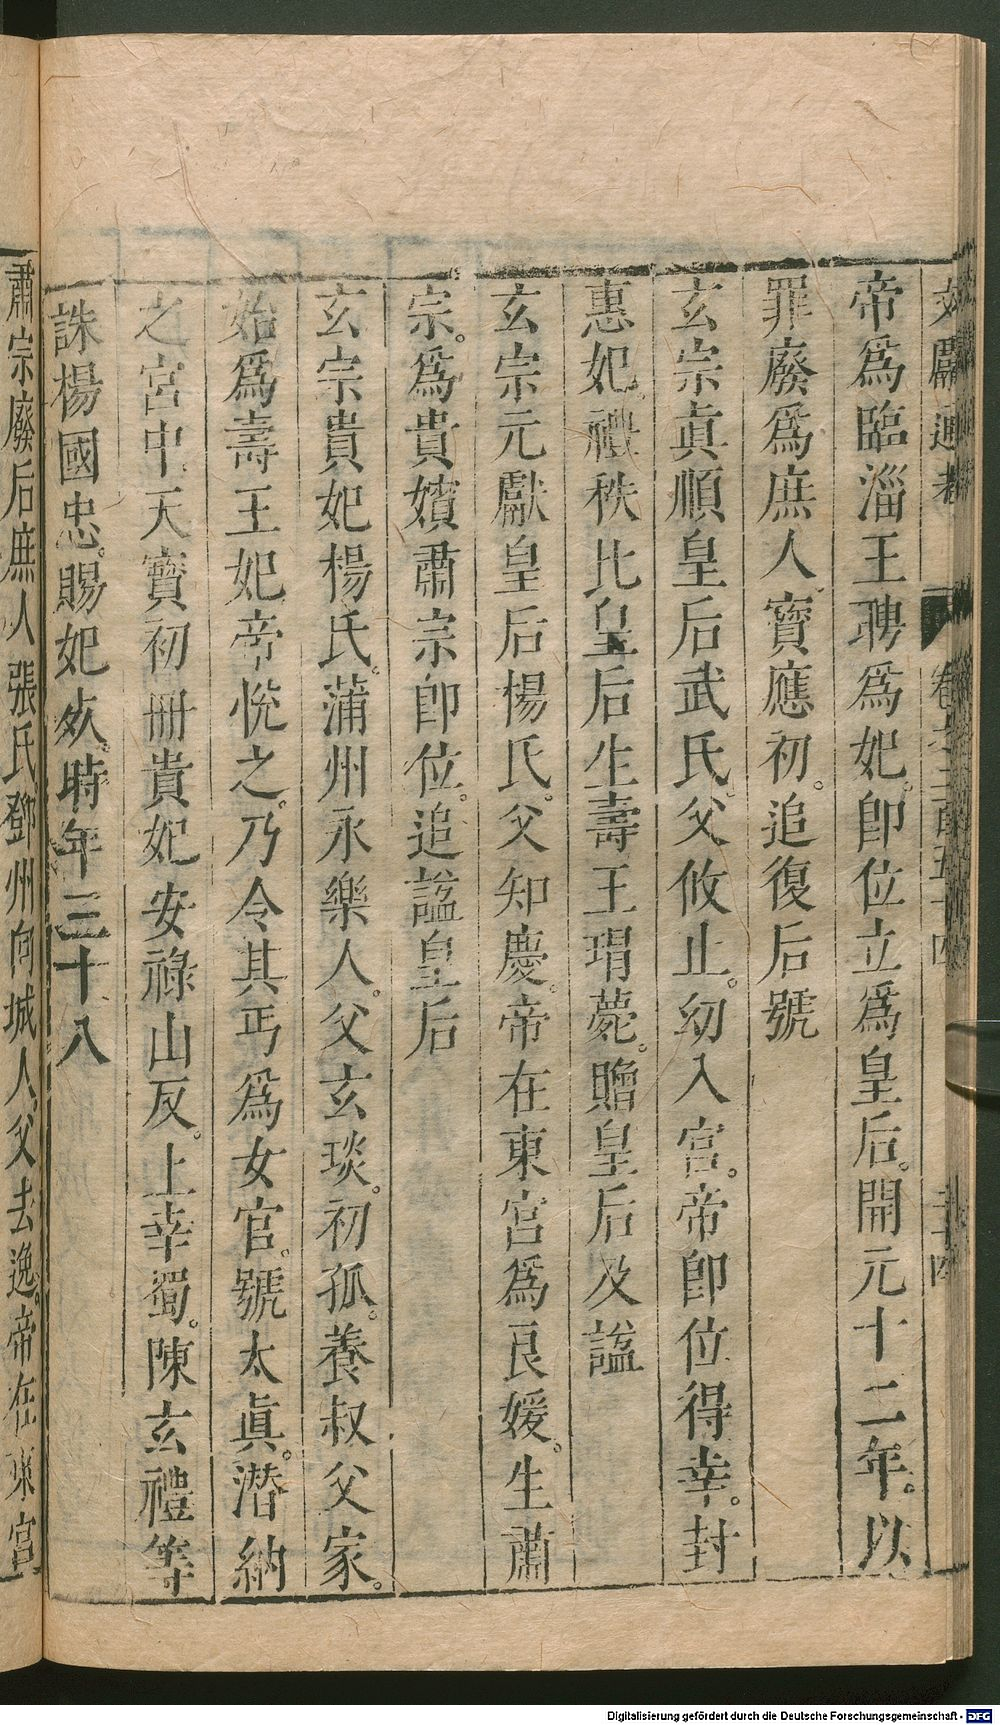 文獻通考 卷之二百五十四 二十四
帝爲臨淄王聘爲妃。卽位立爲皇后。開元十二年。以
罪廢爲庶人。寶應初。追復后號
玄宗眞順皇后武氏。父攸止。幼入宮。帝卽位得幸。封
惠妃。禮秩比皇后生壽王瑁薨。贈皇后及諡
玄宗元獻皇后楊氏。父知慶。帝在東宮爲良媛。生肅
宗。爲貴嬪肅宗卽位。追諡皇后
玄宗貴妃楊氏。蒲州永樂人。父玄琰。初孤。養叔父家。
始爲壽王妃帝悅之。乃令其丐爲女官。號太眞。潛納
之宮中天寶初冊貴妃安祿山反。上幸蜀。陳玄禮等
誅楊國忠。賜妃死。時年三十八
肅宗廢后庶人張氏。鄧州向城人。父去逸。帝在東宮
Digitalisierung gefördert durch die Deutsche Forschungsgemeinschaft - DFG